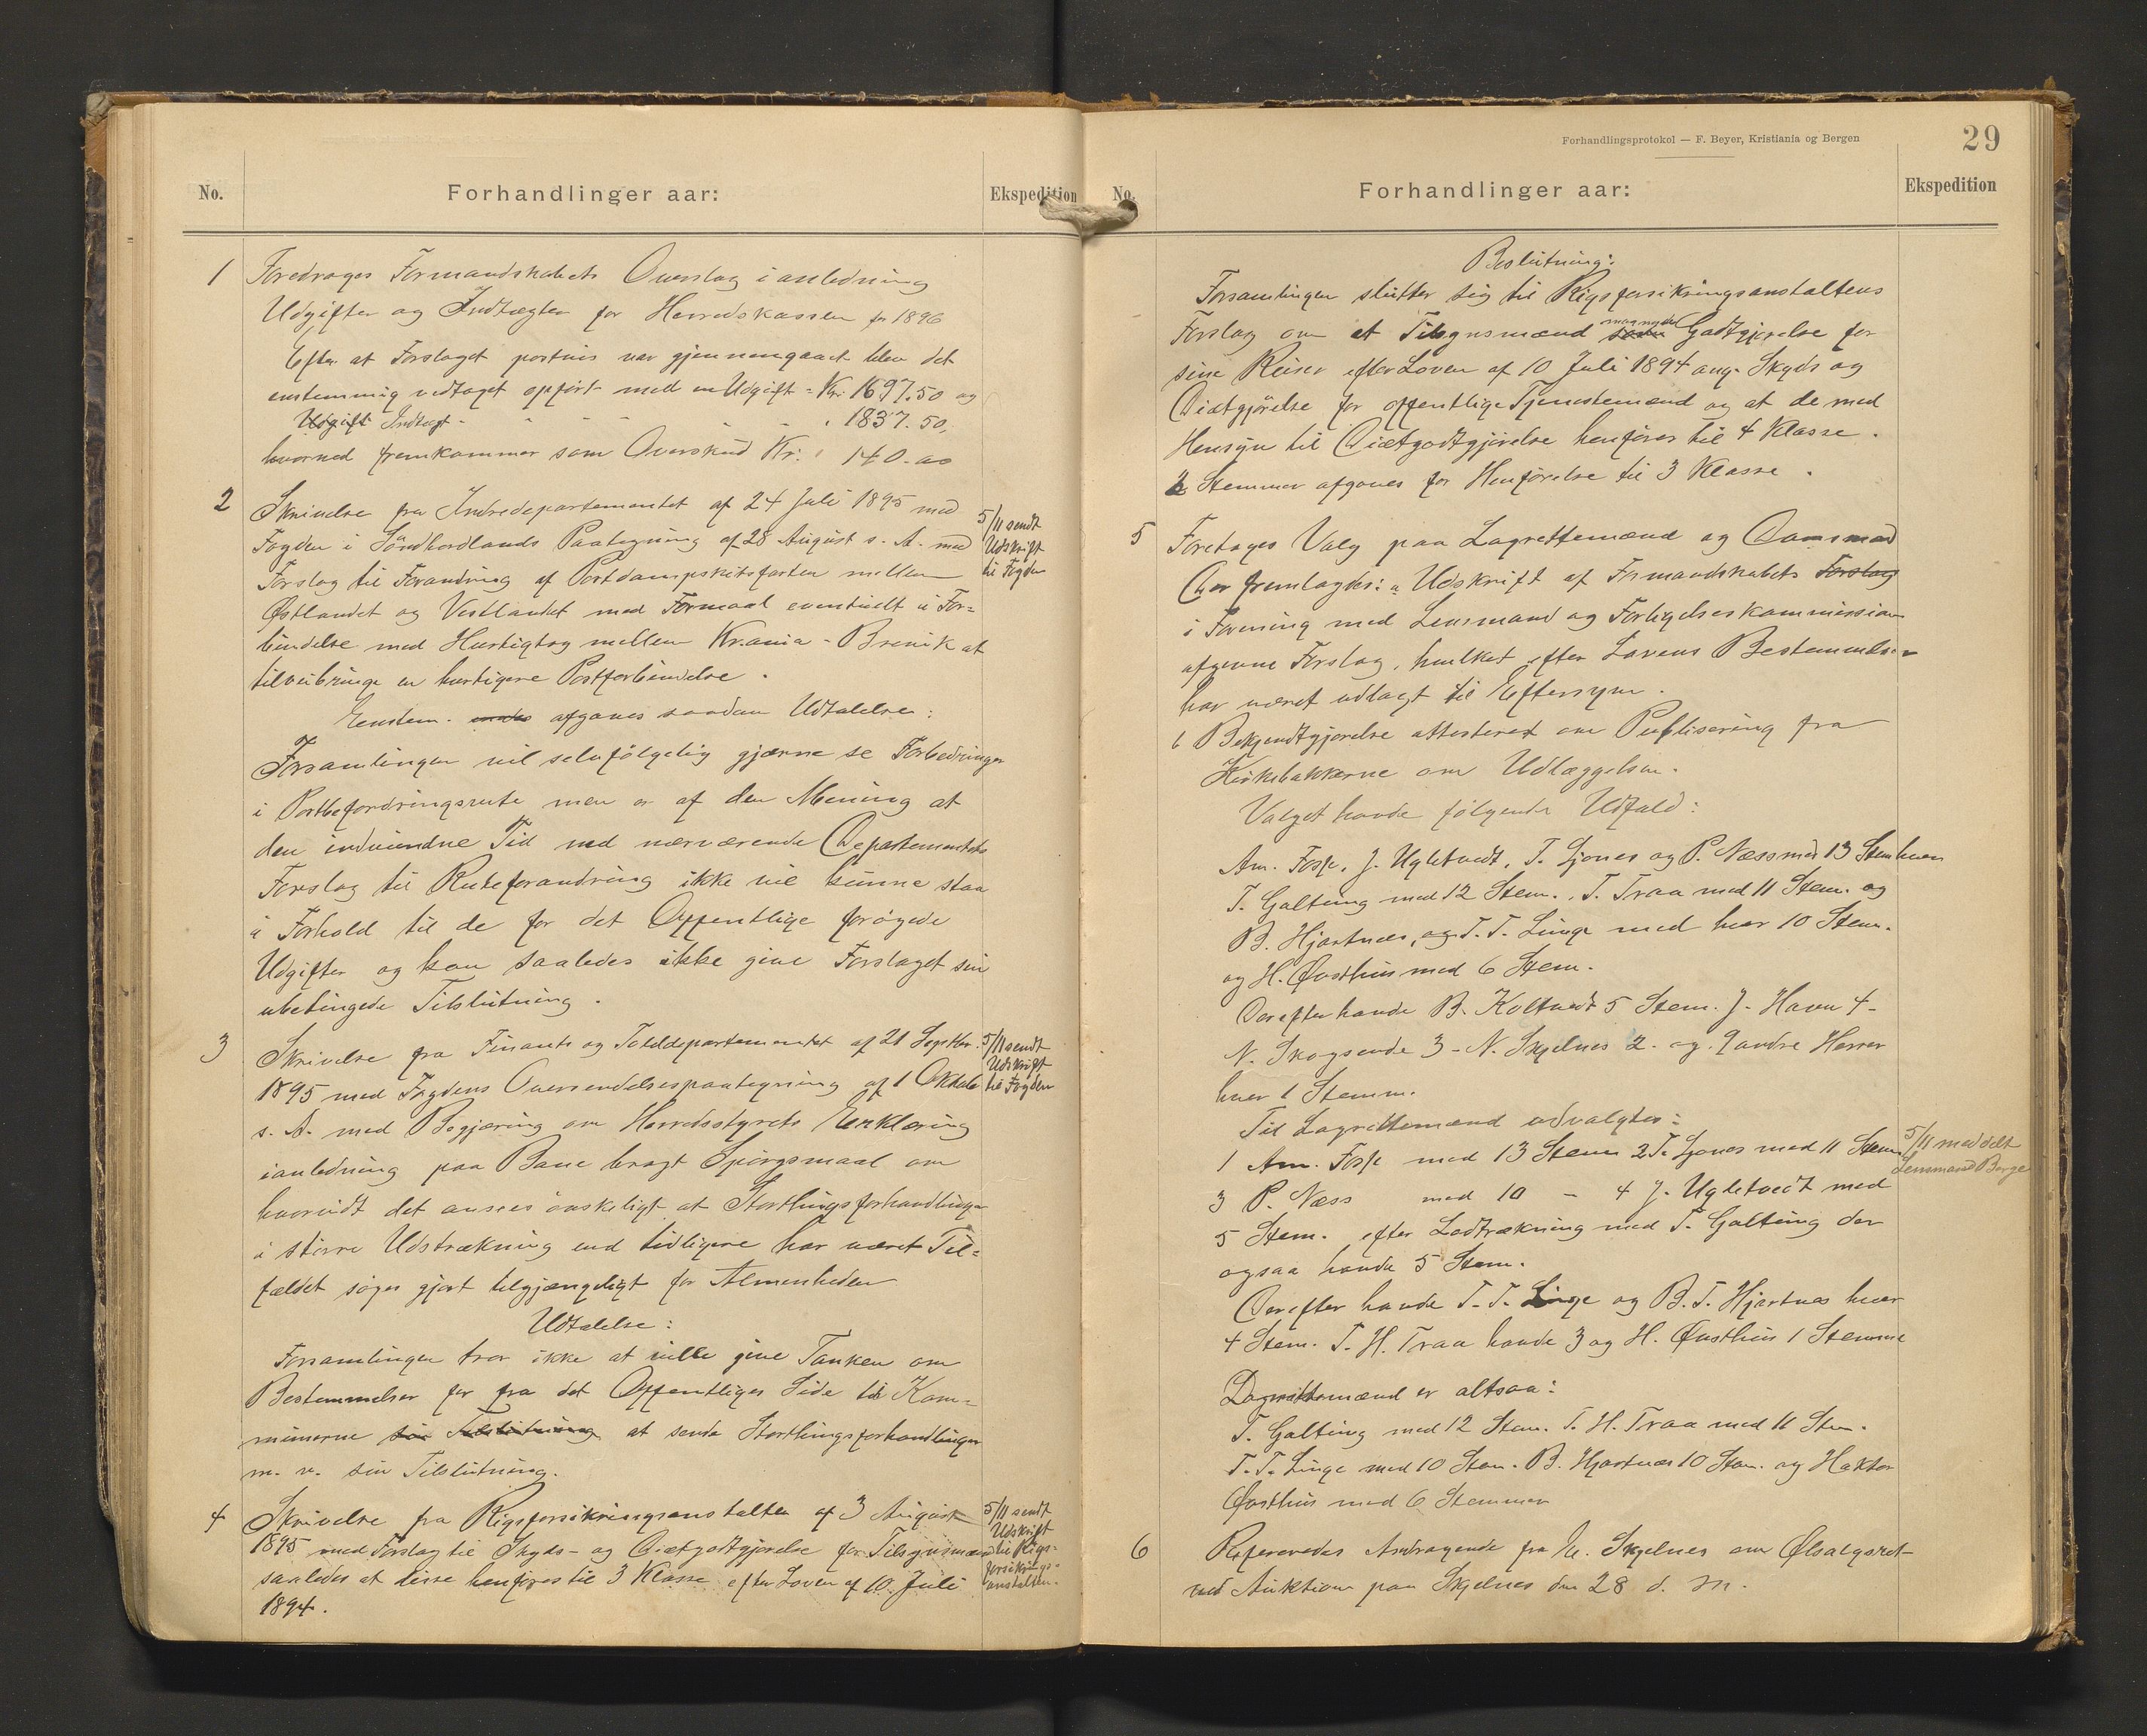 No.
Forhandlinger aar:
Ekspedition
1 Foredrages Formandskabets Overslag i anledning
Udgifter og Indtægter for Herredskassen for 1896
Efter at Forslaget postvis var gjennemgaaet blev det
enstemmig vedtaget opført med en Udgift = Kr. 1697.50 og
Udgift Indtægt - - - - 1837.50,
hvorved fremkommer som Overskud Kr. 140.00
2 Skrivelse fra Indredepartementet af 24 Juli 1895 med
Fogden i Söndhordlands Paategning af 28 August s. A. med
Forslag til Forandring af Postdampskibsfarten mellem
Østlandet og Vestlandet med Formaal eventuelt i For-
bindelse med Hurtigtog mellem Kr.ania - Brevik at
tilveibringe en hurtigere Postforbindelse.
5/11 sendt
Udskrift
til Fogden
Enstem. afgaves saadan Udtalelse:
Forsamlingen vil selvfölgelig gjærne se Forbedringer
i Postbefordringsrute men er af den Mening at
den indvundne Tid ved nærværende Departementets
Forslag til Ruteforandring ikke vil kunne staa
i Forhold til de for det Offentlige forögede
Udgifter og kan saaledes ikke give Forslaget sin
ubetingede Tilslutning.
3 Skrivelse fra Finants og Tolddepartementet af 21 Septbr.
1895 med Fogdens Oversendelsespaategning af 1 Oktober
s. A. med Begjæring om Herredsstyrets Erklæring
ianledning paa Bane bragt Spörgsmaal om
hvorvidt det ansees önskeligt at Storthingsforhandlinger
i större Udstrækning end tidligere har været Til-
fældet søges gjort tilgjængeligt for Almenheden
5/11 sendt
Udskrift
til Fogden
Udtalelse:
Forsamlingen tror ikke at ville give Tanken om
Bestemmelser for fra det Offentliges Side til Kom-
munerne sin Tilslutning at sende Storthingsforhandlinger
m. v. sin Tilslutning.
4 Skrivelse fra Rigsforsikringsanstalten af 3 August
1895 med Forslag til Skyds- og Diætgodtgjørelse for Tilsynsmænd
saaledes at disse henføres til 3 Klasse efter Loven af 10. Juli
1894.
5/11 sendt
Udskrift
til Rigs-
forsikrings-
anstalten.
Forhandlingsprotokol — F. Beyer, Kristiania og Bergen
29
No.
Forhandlinger aar:
Ekspedition
Beslutning:
Forsamlingen slutter sig til Rigsforsikringsanstaltens
Forslag om at Tilsynsmænd Godtgjørelse for
sine Reiser efter Loven af 10 Juli 1894 ang. Skyds og
Diætgjörelse for offentlige Tjenestemænd og at de med
Hensyn til Diætgodtgjörelse henføres til 4 Klasse.
Stemmer afgaves for Henførelse til 3 Klasse.
5 Foretages Valg paa Lagrettemænd og Domsmænd
Der fremlagdes: a Udskrift af Formandskabets Forslag
i Forening med Lensmand og Forligelseskommission
afgivne Forslag, hvilket efter Lovens Bestemmelser
har været udlagt til Eftersyn.
b Bekjendtgjørelse attesteret om Publisering fra
Kirkebakkerne om Udlæggelsen.
Valget havde følgende Udfald:
Am. Fosse, J. Ugletvedt, T. Ljones og P. Næss med 13 Stemmer
T. Galtung med 12 Stem., T. Traa med 11 Stem. og
B. Hjartnæs, og T. T. Linge med hver 10 Stem.
og H. Øvsthus med 6 Stem.
Derefter havde B. Koltvedt 5 Stem. J. Haven 4-
N. Skogseide 3 - N. Skjelnes 2. og 9 andre Herrer
hver 1 Stemm.
Til Lagrettemænd udvalgtes:
1 Am. Fosse med 13 Stem 2 T. Ljones med 11 Stem
3 P. Næss med 10 - 4 J. Ugletvedt med
5 Stem. efter Lodtrækning med T. Galtung der
ogsaa havde 5 Stem.
5/11 meddelt
Lensmand Berge
Derefter havde T. T. Linge og B. T. Hjartnæs hver
4 Stem. T. H. Traa havde 3 og H. Øvsthus 1 Stemme
Domsmænd er altsaa:
T. Galtung med 12 Stem. T. H. Traa med 11 Stem.
T. T. Linge med 10 Stem. B. Hjartnæs 10 Stem. og Haktor
Øvsthus med 6 Stemmer
6 Refereredes Andragende fra N. Skjelnes om Ølsalgsret
ved Auktion paa Skjelnes den 28 d. M.